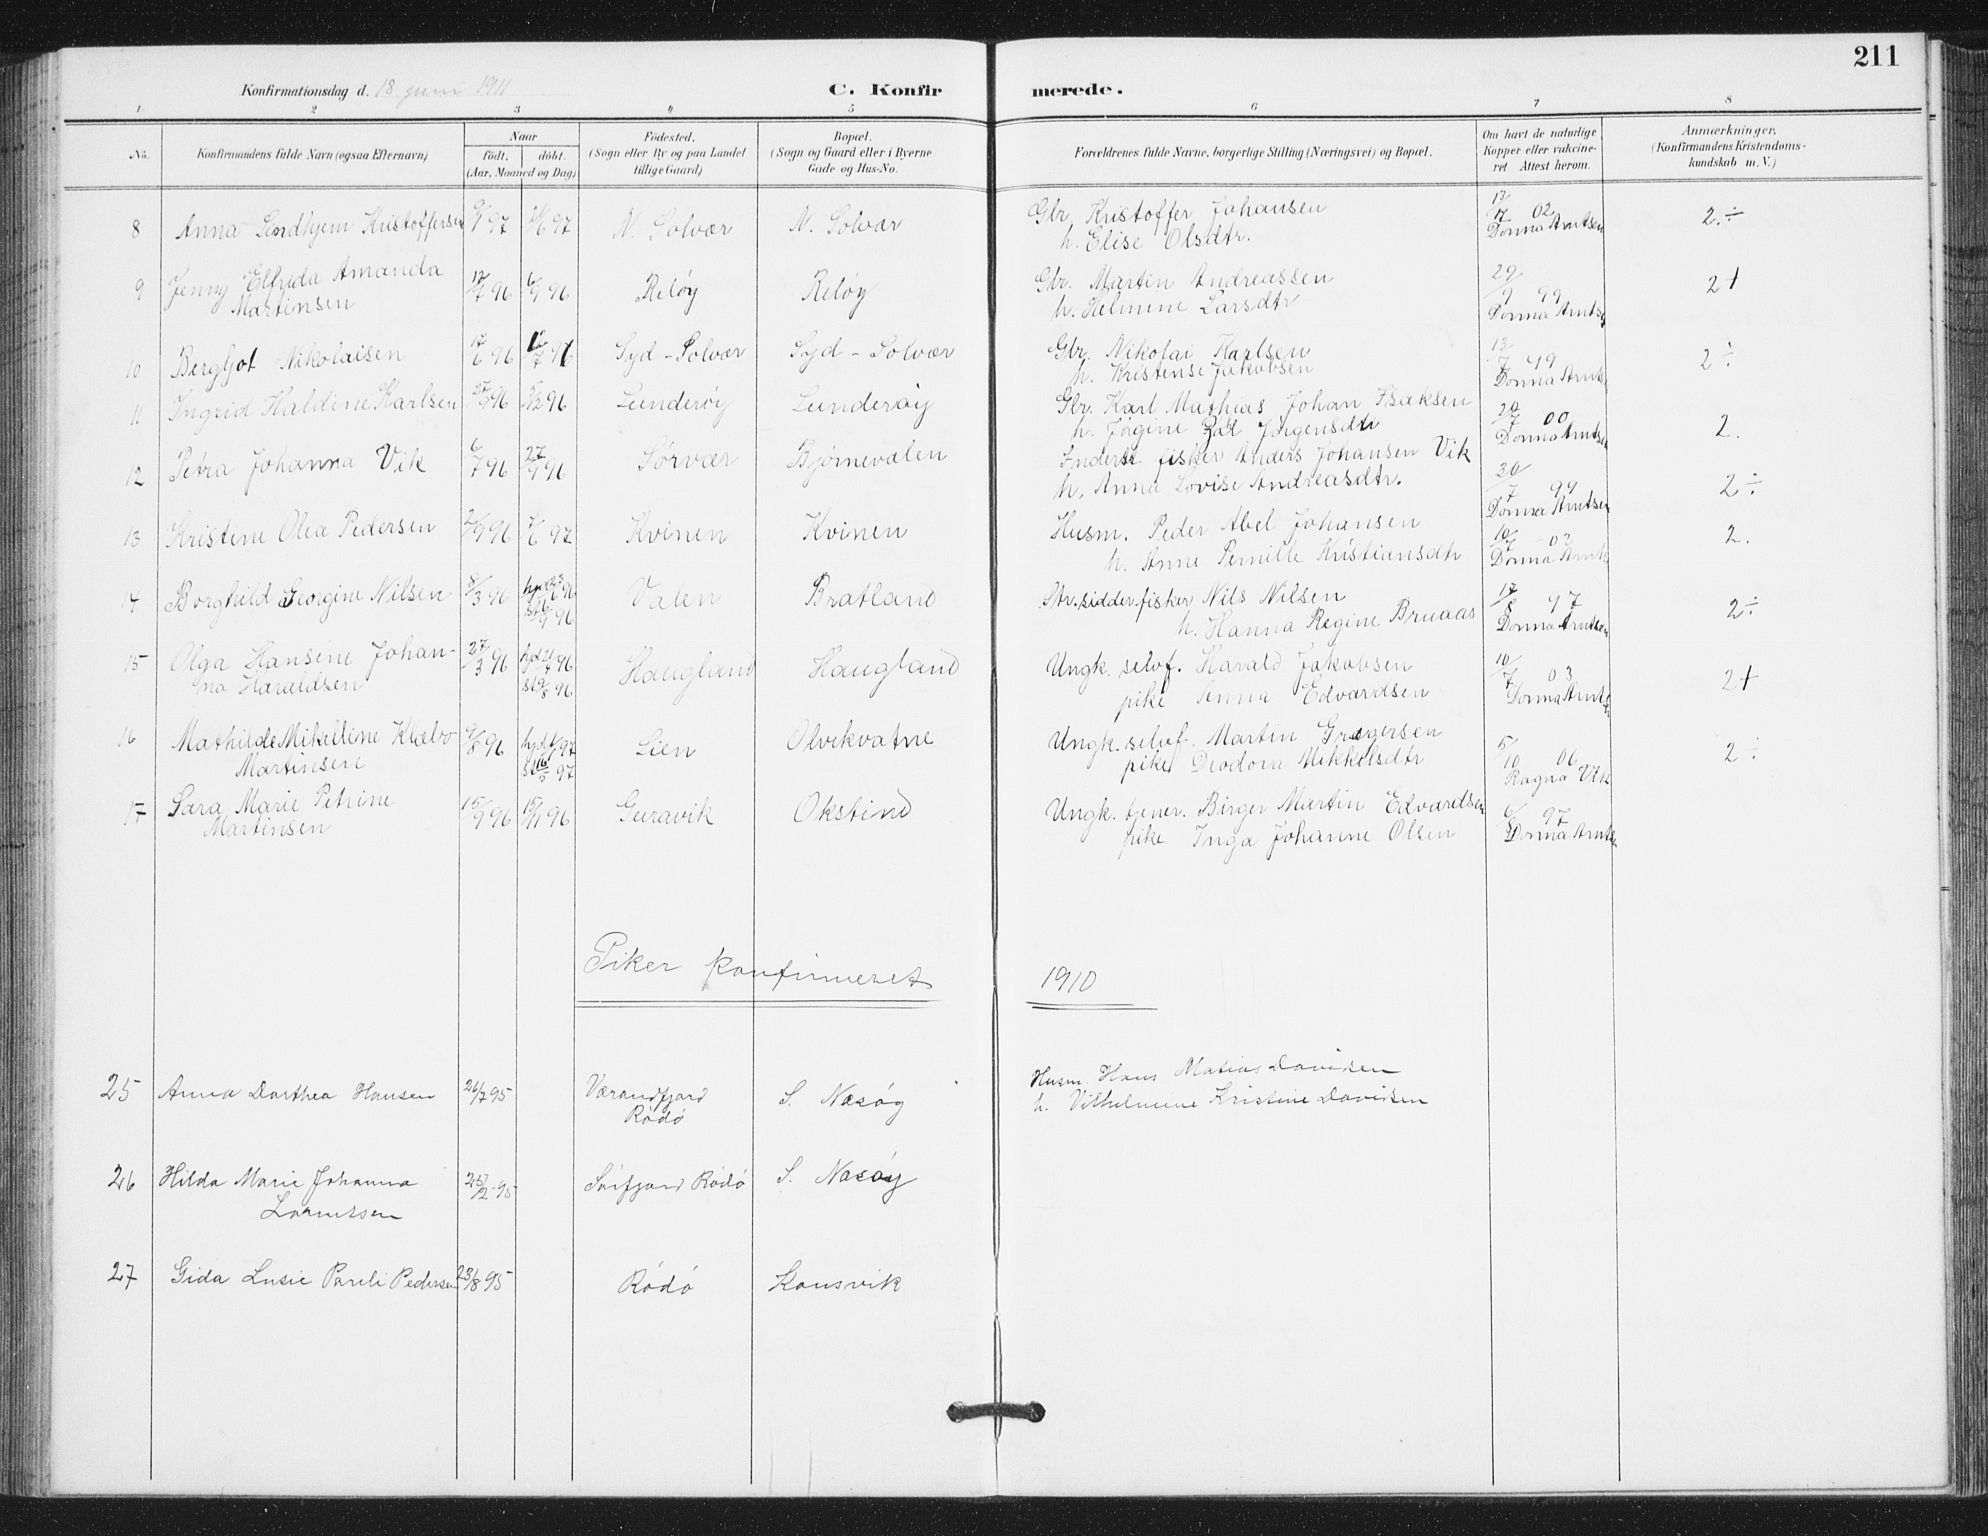 211
Konfirmationsdag d. 18 juni 1911
C. Konfirmerede.
1 2 3 4 5 6 7 8
No.
Konfirmandens fulde Navn (ogsaa Efternavn)
Naar
født. døbt.
(Aar, Maaned og Dag)
Fødested.
(Sogn eller By og paa Landet
tillige Gaard)
Bopæl.
(Sogn og Gaard eller i Byerne
Gade og Hus-No.
Forældrenes fulde Navne, borgerlige Stilling (Næringsvei) og Bopæl.
Om havt de naturlige
Kopper eller vakcine-
ret Attest herom.
Anmærkninger,
(Konfirmandens Kristendoms-
kundskab m. V.)
8 Anna Kristoffersen 97 97 N. Solvær N. Solvær Gbr. Kristoffer Johansen 02 2.÷
h. Elise Olsdtr. Donna Arntsen
9 Jenny Elfrida Amanda 12/7 96 6/9 96 Reløy Reløy Gbr. Martin Andreassen 29/9 99 2+
Martinsen h. Helmine Larsdtr Donna Arntsen
10 Bergljot Nikolaisen 17/6 96 96 Syd-Solvær Syd-Solvær Gbr. Nikolai Karlsen 13/7 99 2÷
h. Kristense Jakobsen Donna Arnts
11 Ingrid Haldine Karlsen 27/9 96 5/12 96 Sunderøy Sunderøy Gbr. Karl Mathias Johan Isaksen 20/7 00 2.
h. Jørgine Jørgensdtr Donna Arntsen
12 Petra Johanna Vik 6/7 96 27/9 96 Sørvær Bjørnevalen Inderst fisker Anders Johansen Vik 30/7 99 2÷
h. Anna Lovise Andreasdtr. Donna Arntsen
13 Kristine Olea Pedersen 96 97 Kvinen Kvinen Husm. Peder Abel Johansen 10/7 03 2.
h. Anne Pernille Kristiansdtr Donna Arnts
14 Borghild Georgine Nilsen 8/3 96 hjd 96 Valen Bratland Str.sidder fisker Nils Nilsen 17/8 97 2÷
st 96 h. Hanna Regine Bruaas Donna Arntsen
15 Olga Hansine Johan- 27/3 96 hjd 96 Haugland Haugland Ungk. selvf. Harald Jakobsen 10/7 03 2+
na Haraldsen st 9/8 96 pike Anna Edvardsen Donna Arnts
16 Mathilde Mikelline Klæbo 9/8 96 hjd 97 Lien Olvikvatne Ungk. selvf. Martin Gregersen 5/10 06 2÷
Martinsen st 16/5 97 pike Deodora Mikkelsdtr Ragna Vik
17 Sara Marie Petrine 15/9 96 15/11 96 Guravik Okstind Ungk. tjener. Birger Martin Edvardsen 97
Martinsen pike Inga Johanne Olsen Donna Arntsen
Piker konfirmeret 1910
25 Anna Dorthea Hansen 26/7 95 Værandfjord S. Nesøy Husm. Hans Matias Davidsen
Rödö h. Vilhelmine Kristine Davidsen
26 Hilda Marie Johanna 25/2 95 Sörfjord Rödö S. Nesøy
Lorentsen
27 Gida Lusie Pareli Pedersen 23/8 95 Rödö Konsvik